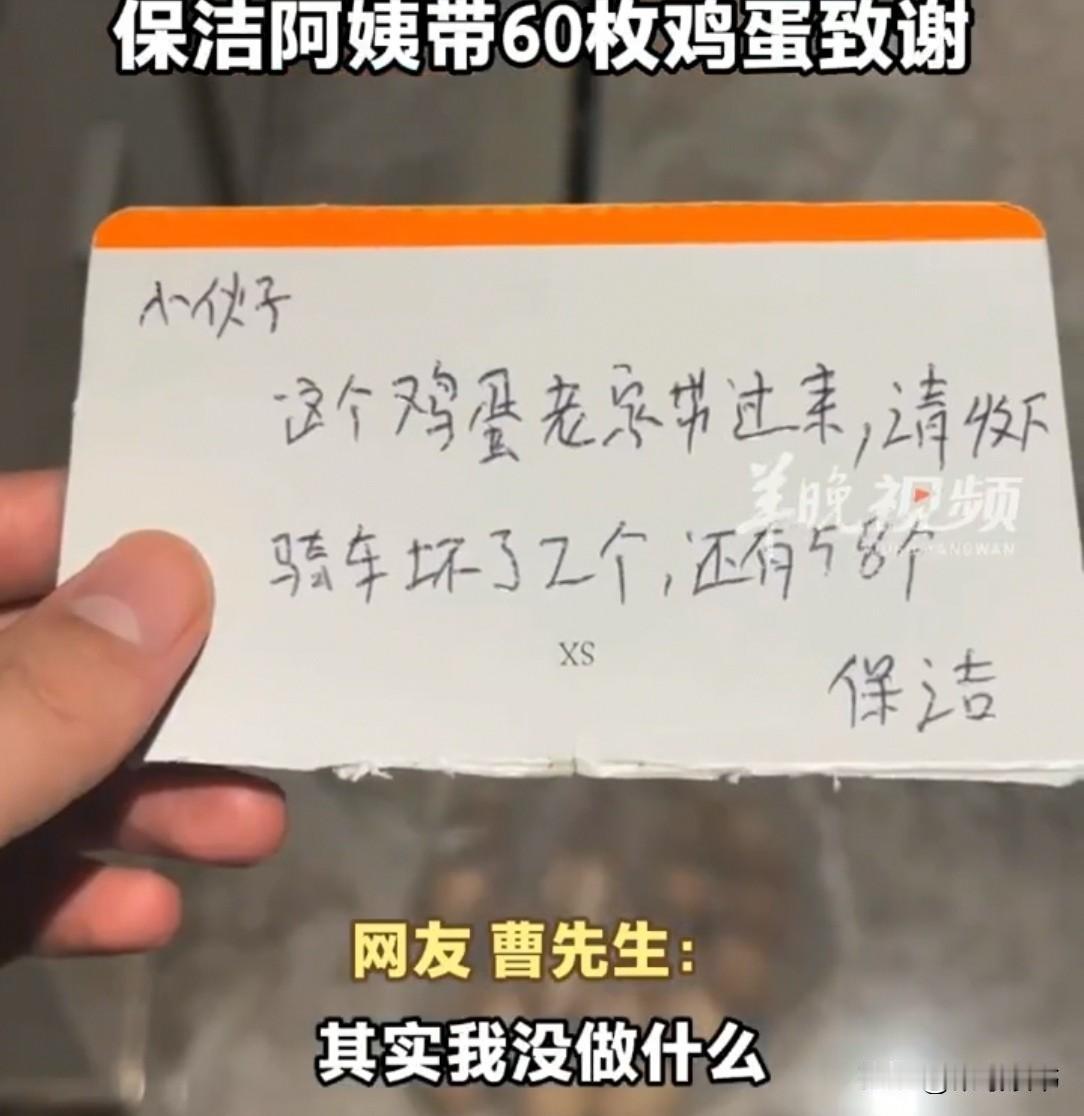 保洁阿姨带60枚鸡蛋致谢
小伙子
这个鸡蛋老家带过来,请收下
羊晚视频
YANGWAN
骑车坏了2个,还有58个
XS
保洁
网友 曹先生:
其实我没做什么